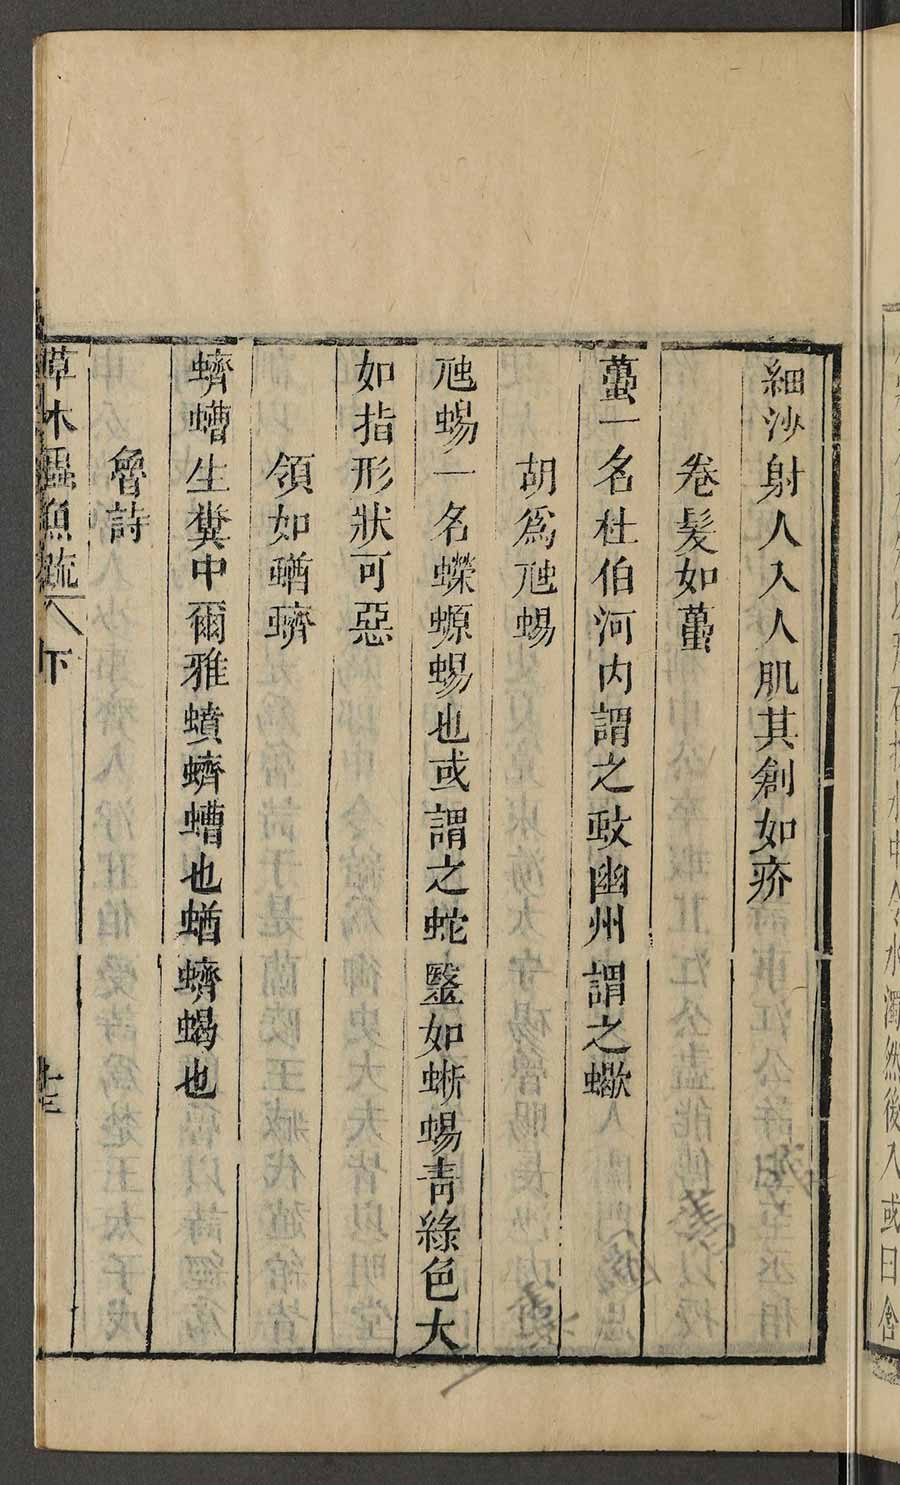 細沙射人入人肌其創如疥
卷髮如蠆
蠆一名杜伯河内謂之蚑幽州謂之蠍
胡爲虺蜴
虺蜴一名蠑螈蜴也或謂之蛇醫如蜥蜴青綠色大
如指形狀可惡
領如蝤蠐
蠐螬生糞中爾雅蟦蠐螬也蝤蠐蝎也
魯詩
草木蟲魚疏 下